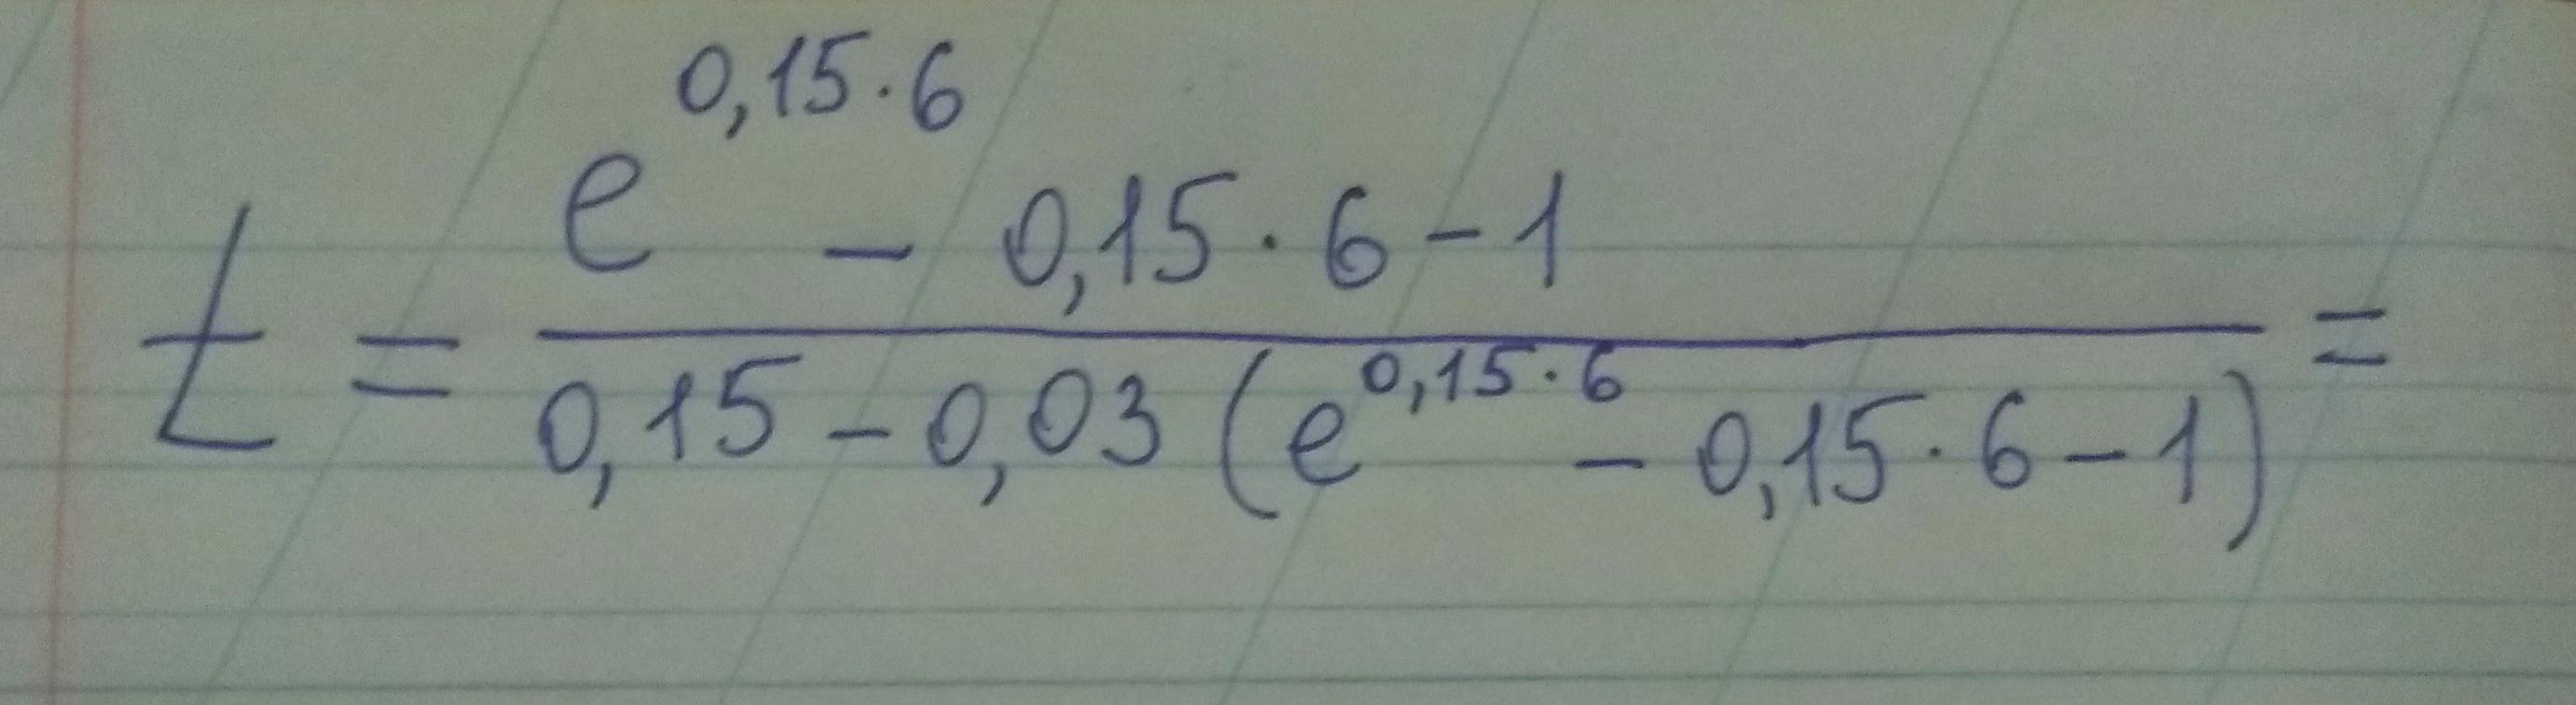 t = (e^{0,15·6} - 0,15·6-1)/(0,15-0,03(e^{0,15·6} - 0,15·6-1)) =